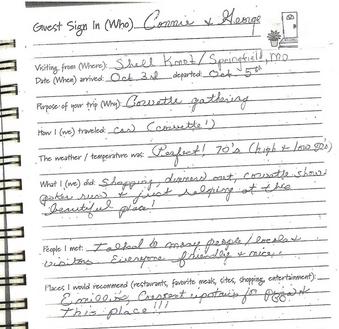 Guest Sign In (Who) Connie & George
Visiting from (Where): Shell Knob / Springfield, MO
Date (When) arrived: Oct 3rd departed: Oct 5th
Purpose of your trip (Why) Corvette gathering
How I (we) traveled: car (Corvette!)
The weather / temperature was: Perfect! 70's (high & low 80's)
What I (we) did: Shopping, dinners out, corvette show
poker run & just relaxing at this
beautiful place!
People I met: Talked to many people / locals &
visitors Everyone friendly & nice.
Places I would recommend (restaurants, favorite meals, sites, shopping, entertainment):
Emilios, Crescent upstairs for pizza &
This place!!!